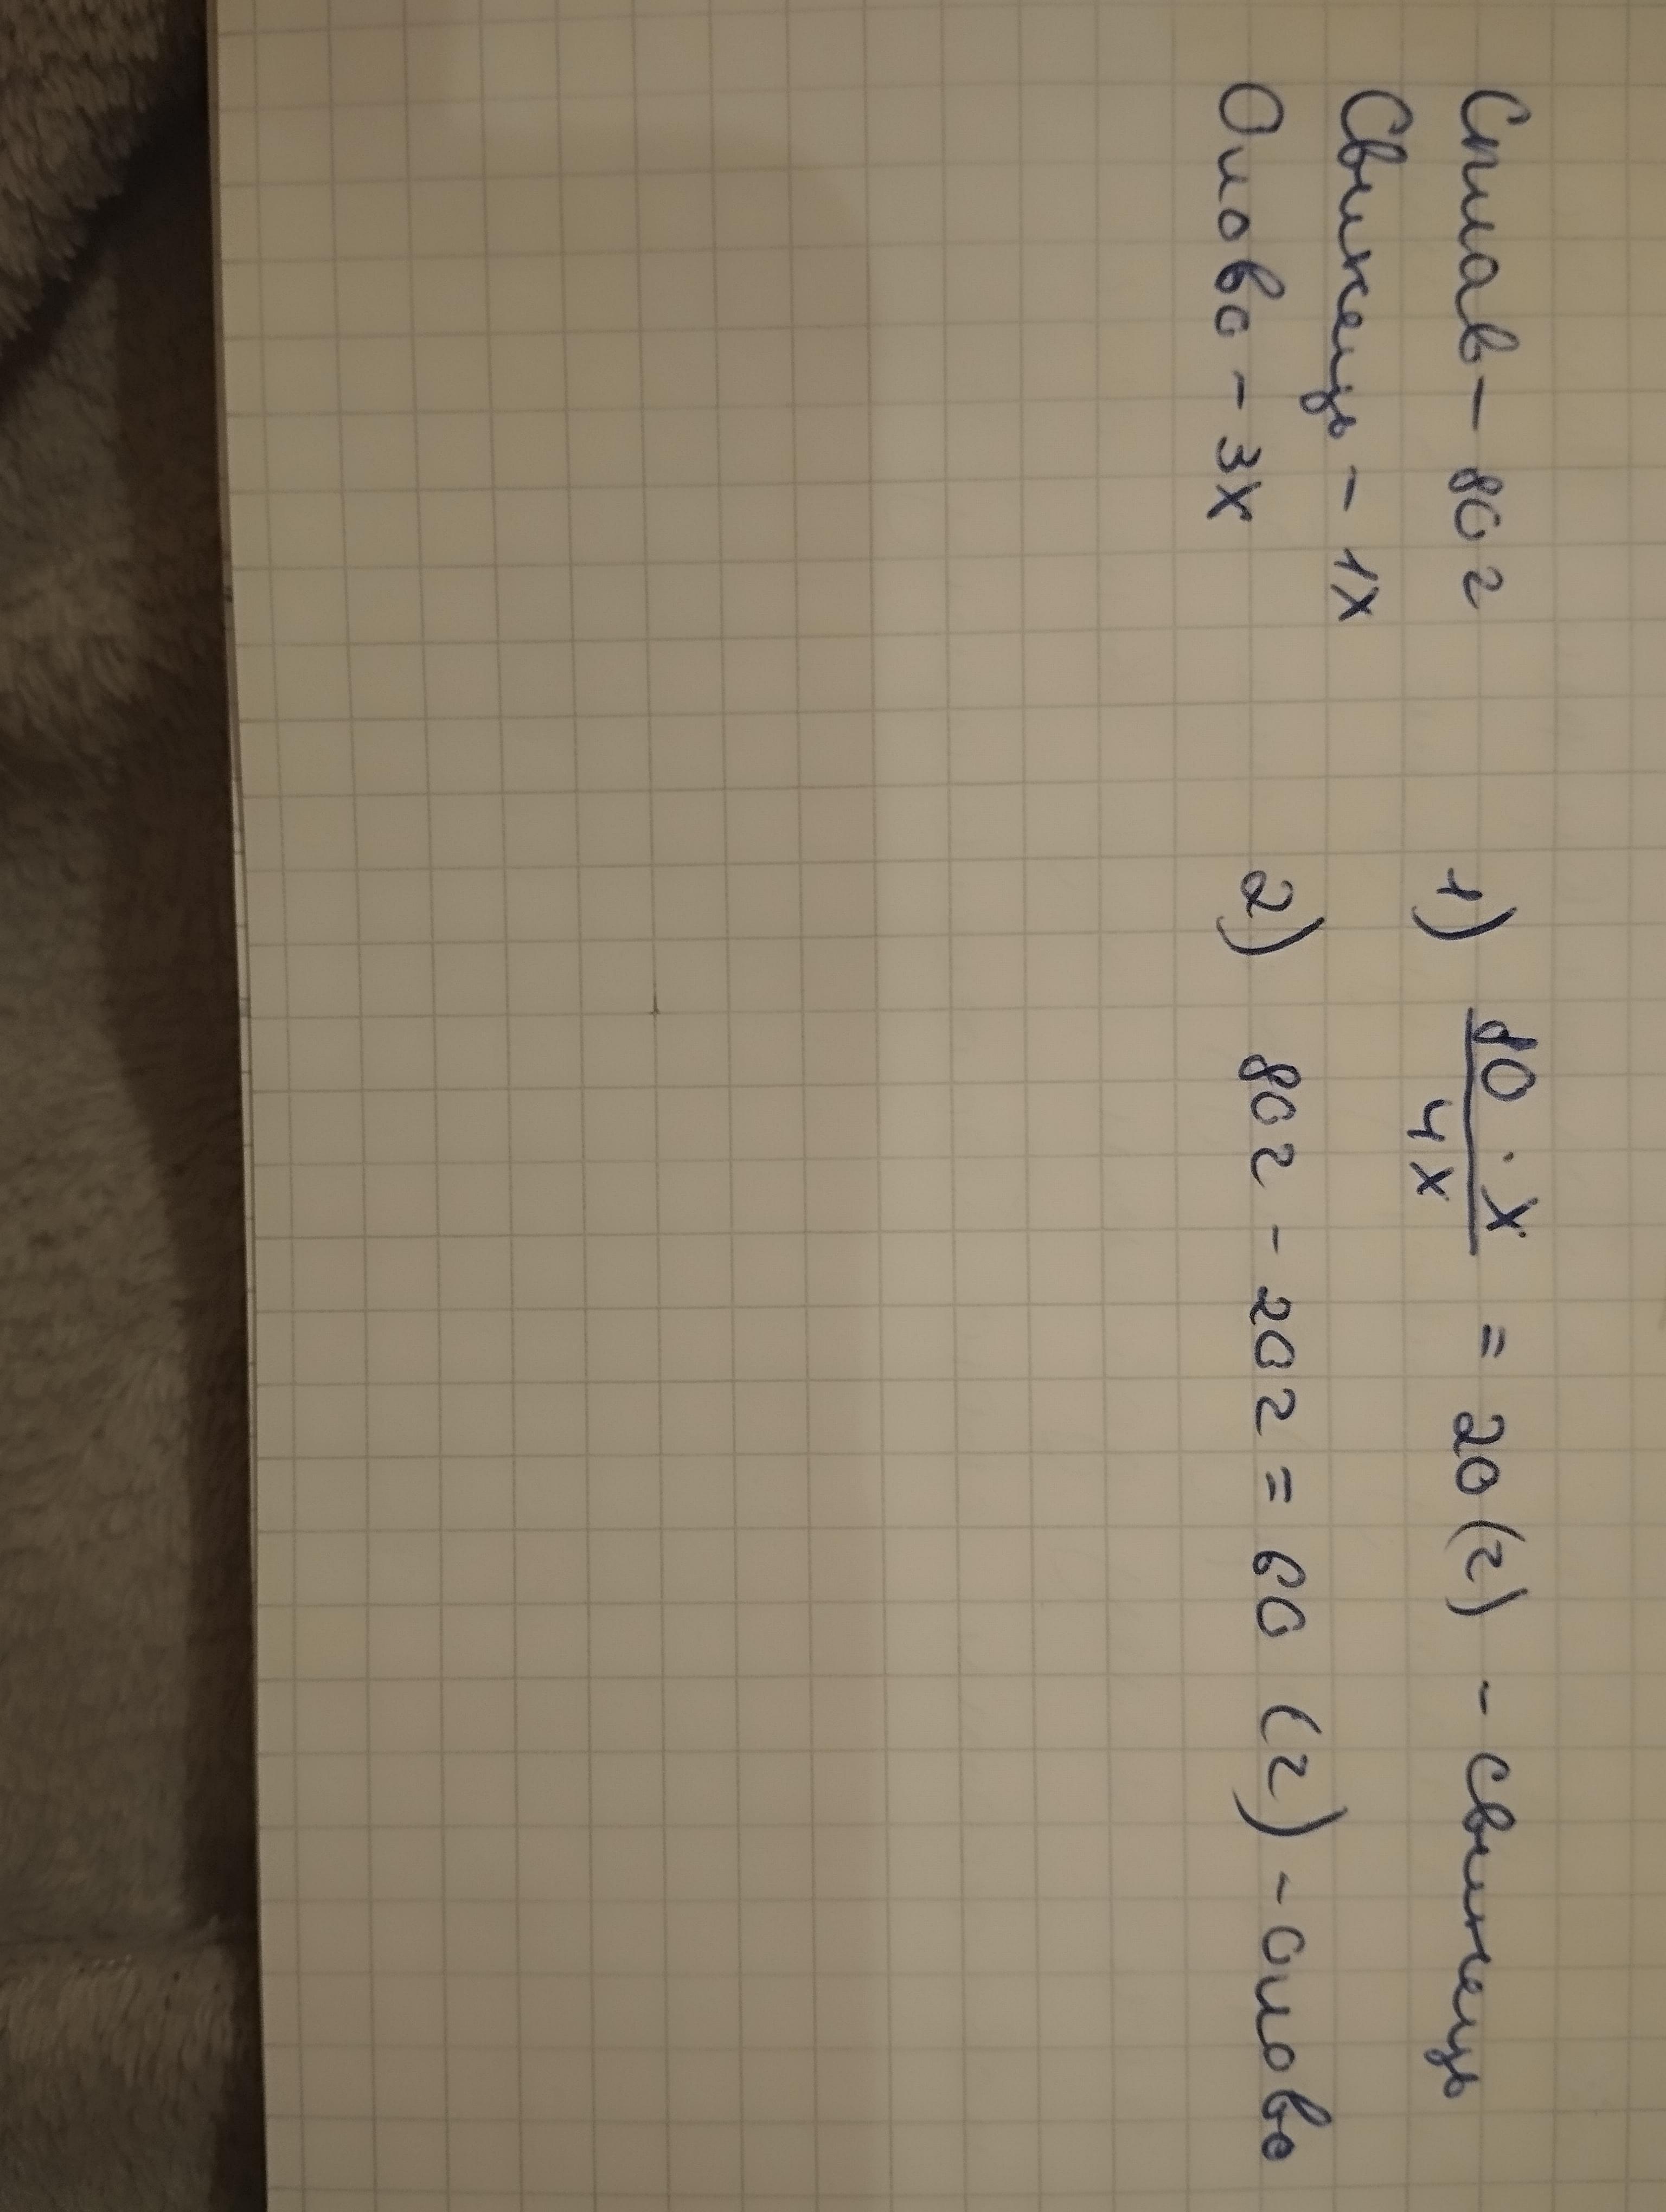 Сплав - 80 г
Свинець - 1х
Олово - 3х
1) 80 · х / 4х = 20 (г) - свинець
2) 80г - 20г = 60 (г) - олово